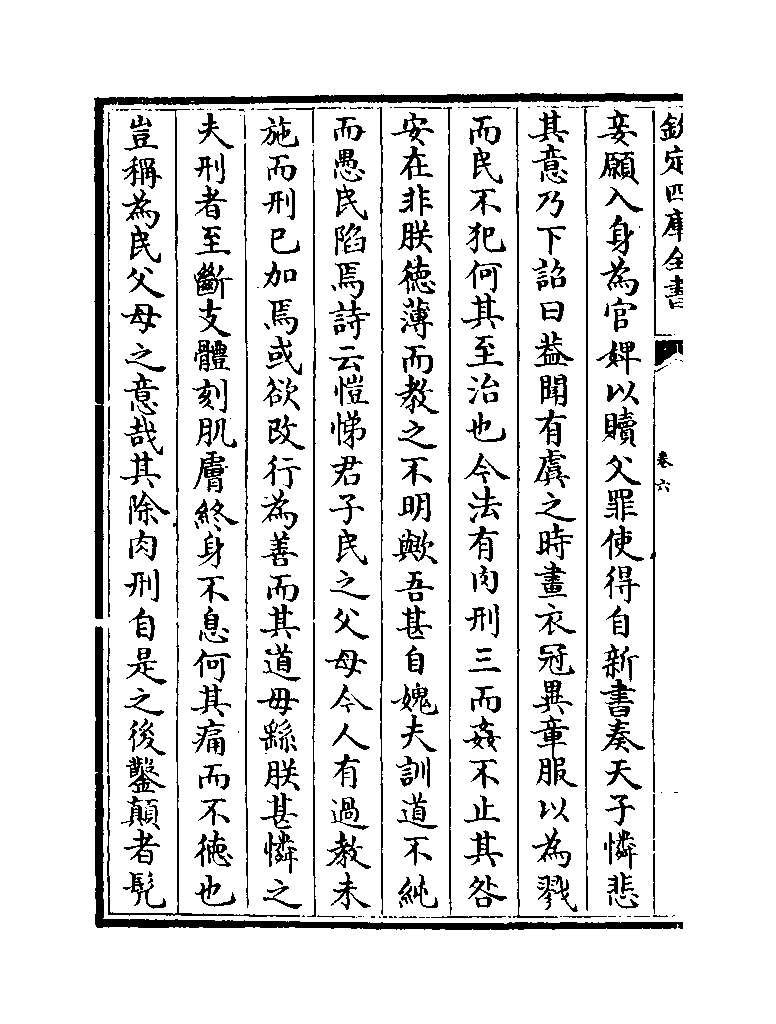 欽定四庫全書
卷六
妾願入身為官婢以贖父罪使得自新書奏天子憐悲
其意乃下詔曰葢聞有虞之時畫衣冠異章服以為戮
而民不犯何其至治也今法有肉刑三而姦不止其咎
安在非朕徳薄而教之不明歟吾甚自媿夫訓道不純
而愚民陷焉詩云愷悌君子民之父母今人有過教未
施而刑已加焉或欲改行為善而其道毋繇朕甚憐之
夫刑者至斷支體刻肌膚終身不息何其痛而不徳也
豈稱為民父母之意哉其除肉刑自是之後鑿顛者髠